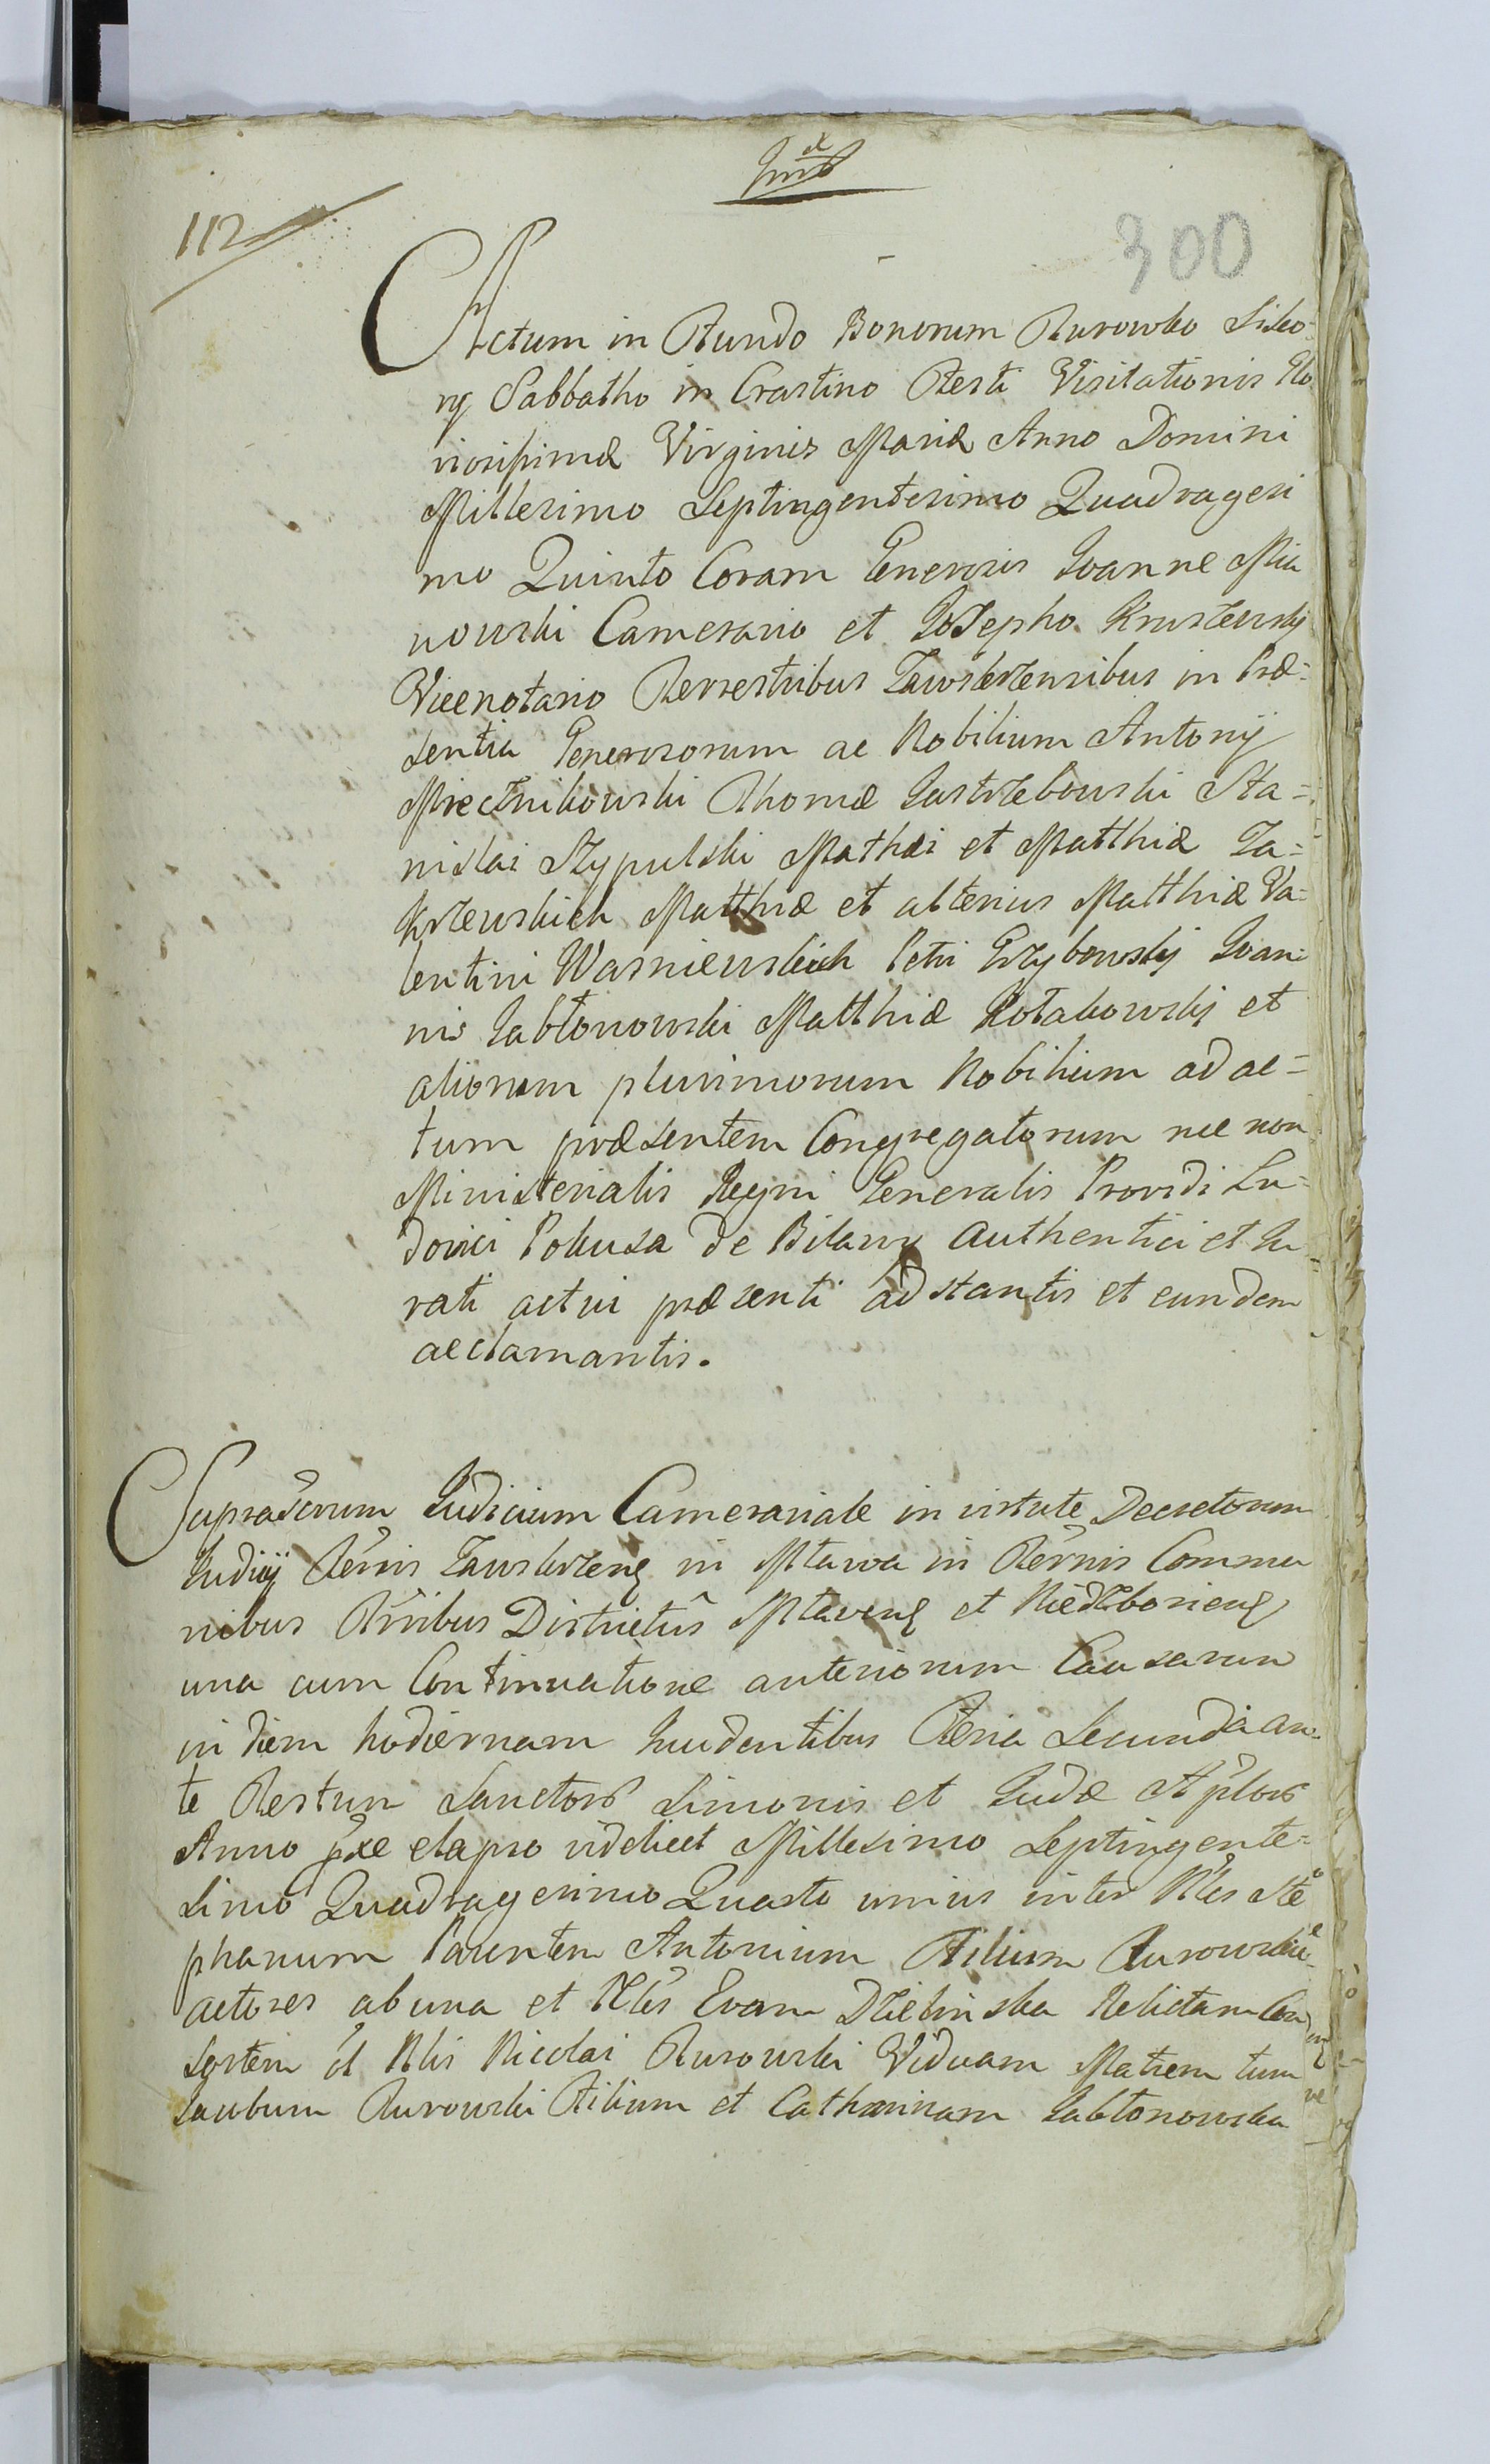 112
300
Actum in Fundo Bonorum Turowko Sisko
ng Sabbatho in Crastino Festi Visitationis Glo
riosissimæ Virginis Mariæ Anno Domini
Millesimo Septingentesimo Quadragesi
mo Quinto Coram Generosis Joanne Mia
nowski Camerario et Josepho Kruszewskj
Vicenotario Terrestribus Zawskrzensibus in Præ=
sentia Generosorum ac Nobilium Antonij
Miecznikowski Thomæ Jastrzebowski Sta=
nislai Szypulski Mathæi et Matthiæ Za=
krzewskich Matthiæ et alterius Matthiæ Va=
lentini Wasniewskich Petri Grzybowskj Joan=
nis Jabłonowski Matthiæ Kołakowskj et
aliorum plurimorum Nobilium ad ac=
tum præsentem Congregatorum nec non
Ministerialis Regni Generalis Providi Lu=
dovici Pokusa de Bilawy Authentici et Ju=
rati actui præsenti adstantis et eundem
acclamantis.
Judicium Camerariale in virtute Decretorum
Judicij Terris Zawskrzen in Mława in Terris Commu
nibus Districtus Mlaven et Niedzborien
una cum Continuatione anteriorum Causarum
in diem hodiernam Feria Secunda an=
te Festum Sanctor Simonis et Judæ Aplor
Anno pxe elapso videlicet Millesimo Septingente=
simo Quadragesimo Quarto unius inter Nles Ste
phanum Parentem Antonium Filium Turowskie
actores ab una et Nles Evam Dzielinska Relictam Con
sortem ol Nlis Nicolai Turowski Viduam Matrem tum
Jacobum Turowski Filium et Catharinam Jabłonowska